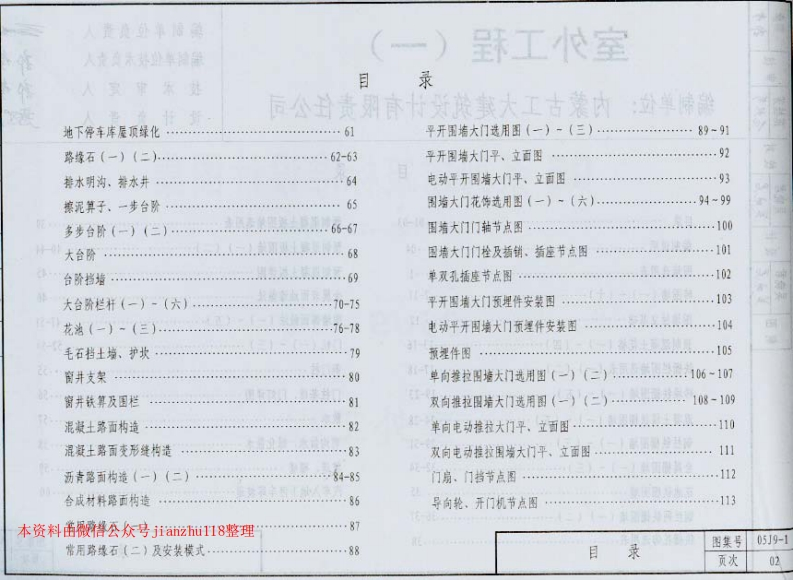 目 录
地下停车库屋顶绿化 61
路缘石(一)(二) 62-63
排水明沟、排水井 64
擦泥箅子、一步台阶 65
多步台阶(一)(二) 66-67
大台阶 68
台阶挡墙 69
大台阶栏杆(一)-(六) 70-75
花池(一)-(三) 76-78
毛石挡土墙、护坎 79
窗井支架 80
窗井铁箅及围栏 81
混凝土路面构造 82
混凝土路面变形缝构造 83
沥青路面构造(一)(二) 84-85
合成材料路面构造 86
常用路缘石(一) 87
常用路缘石(二)及安装模式 88
平开围墙大门选用图(一)-(三) 89-91
平开围墙大门平、立面图 92
电动平开围墙大门平、立面图 93
围墙大门花饰选用图(一)-(六) 94-99
围墙大门门轴节点图 100
围墙大门门栓及插销、插座节点图 101
单双孔插座节点图 102
平开围墙大门预埋件安装图 103
电动平开围墙大门预埋件安装图 104
预埋件图 105
单向推拉围墙大门选用图(一)(二) 106-107
双向推拉围墙大门选用图(一)(二) 108-109
单向电动推拉大门平、立面图 110
双向电动推拉围墙大门平、立面图 111
门扇、门挡节点图 112
导向轮、开门机节点图 113
本资料由微信公众号jianzhu118整理
目 录
图集号 05J9-1
页次 02